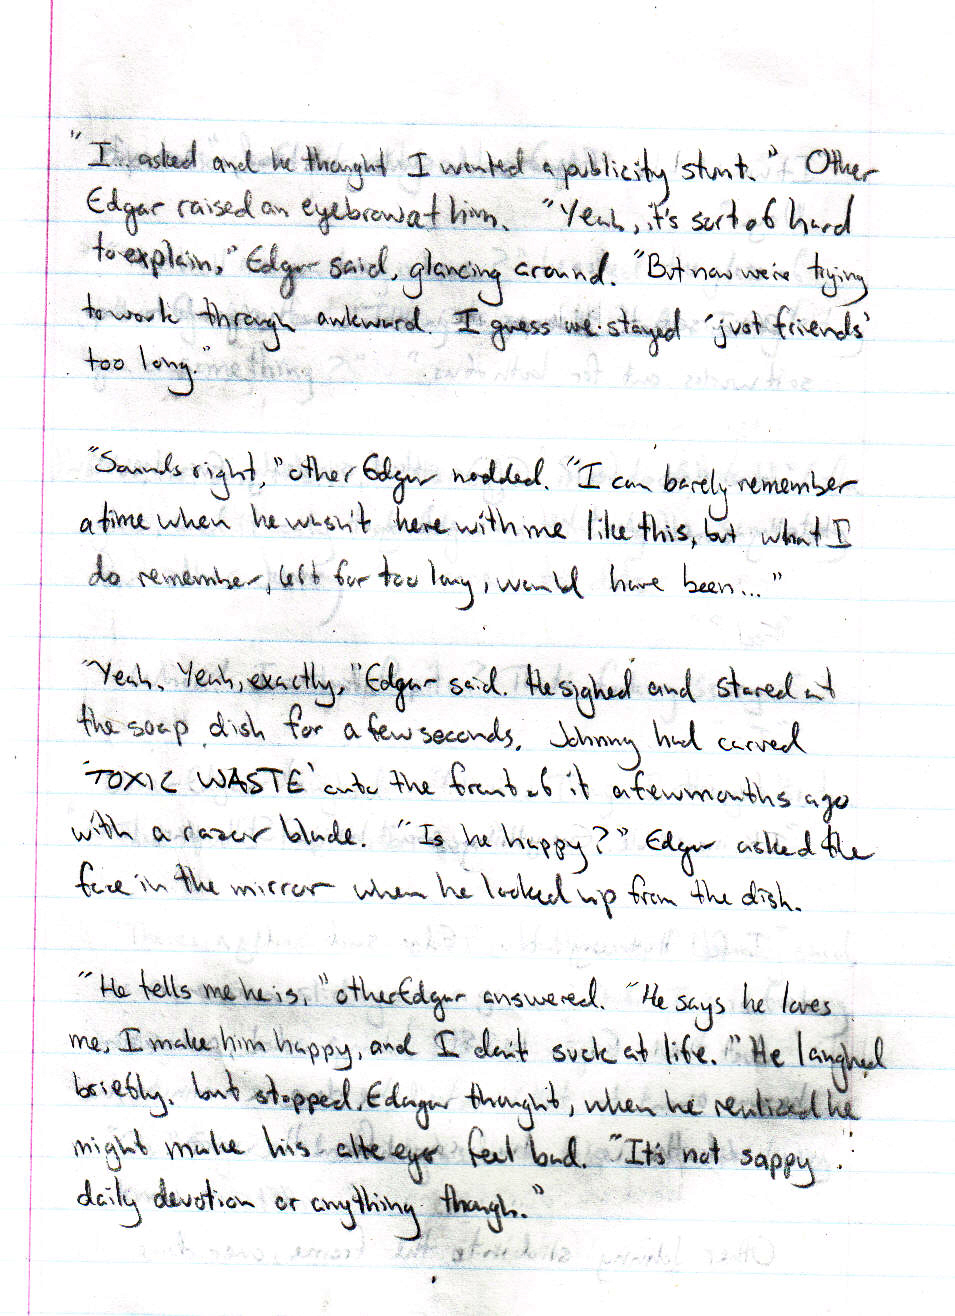 "I asked and he thought I wanted a publicity stunt." Other
Edgar raised an eyebrow at him. "Yeah, it's sort of hard
to explain," Edgar said, glancing around. "But now we're trying
to work through awkward. I guess we stayed 'just friends'
too long."
"Sounds right," other Edgar nodded. "I can barely remember
a time when he wasn't here with me like this, but what I
do remember, left for too long, would have been..."
"Yeah. Yeah, exactly," Edgar said. He sighed and stared at
the soap dish for a few seconds. Johnny had carved
'TOXIC WASTE' onto the front of it a few months ago
with a razor blade. "Is he happy?" Edgar asked the
face in the mirror when he looked up from the dish.
"He tells me he is," other Edgar answered. "He says he loves
me, I make him happy, and I don't suck at life." He laughed
briefly, but stopped, Edgar thought, when he realized he
might make his alter ego feel bad. "It's not sappy
daily devotion or anything though."